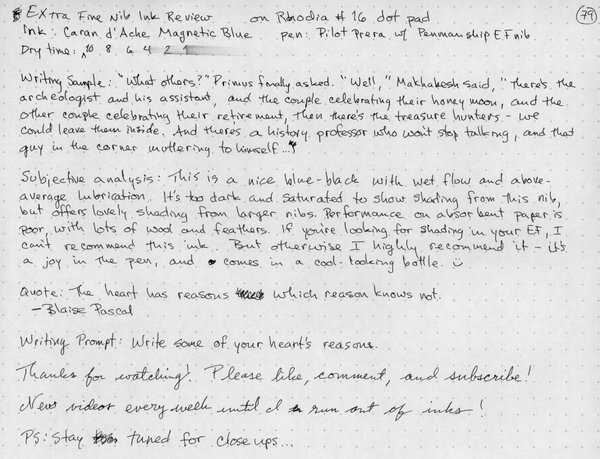 Extra Fine Nib Ink Review on Rhodia #16 dot pad 79
Ink: Caran d'Ache Magnetic Blue pen: Pilot Prera w/ Penmanship EF nib
Dry time: 10 8 6 4 2 1
Writing Sample: "What others?" Primus finally asked. "Well," Makhabesh said, "There's the
archeologist and his assistant, and the couple celebrating their honeymoon, and the
other couple celebrating their retirement, then there's the treasure hunters - we
could leave them inside. And theres a history professor who won't stop talking, and that
guy in the corner muttering to himself..."
Subjective analysis: This is a nice blue-black with wet flow and above-
average lubrication. It's too dark and saturated to show shading from this nib,
but offers lovely shading from larger nibs. Performance on absorbent paper is
poor, with lots of wool and feathers. If you're looking for shading in your EF, I
can't recommend this ink. But otherwise I highly recommend it - it's
a joy in the pen, and comes in a cool-looking bottle. ☺
Quote: The heart has reasons which reason knows not.
- Blaise Pascal
Writing Prompt: Write some of your heart's reasons.
Thanks for watching! Please like, comment, and subscribe!
New videos every week until I run out of inks!
PS: Stay tuned for close ups...